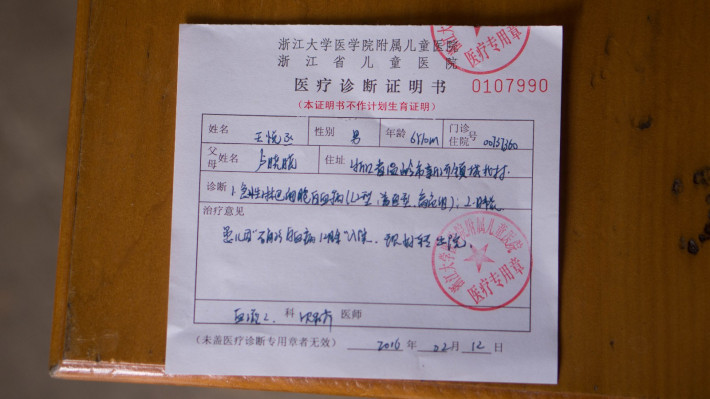 浙江大学医学院附属儿童医院
浙江省儿童医院
医疗诊断证明书 0107990
(本证明书不作计划生育证明)
姓名 王悦丞 性别 男 年龄 6Y10m 门诊住院号 00737360
父母姓名 卢晓晓 住址 浙江省温岭市新河镇塘北村.
诊断 1.急性淋巴细胞白血病(L2型, 高危组); 2.
治疗意见
患儿因"入院. 现好转出院.
血液2 科 医师
(未盖医疗诊断专用章者无效) 2016年02月12日
医疗专用章
浙江大学医学院附属儿童医院
医疗专用章